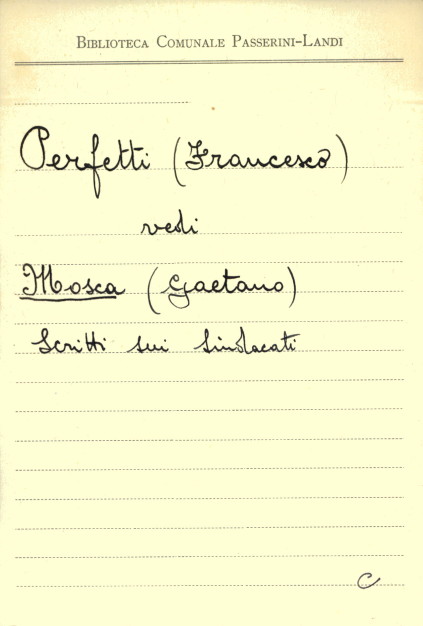 BIBLIOTECA COMUNALE PASSERINI-LANDI
Perfetti (Francesco)
vedi
Mosca (Gaetano)
Scritti sui sindacati
C